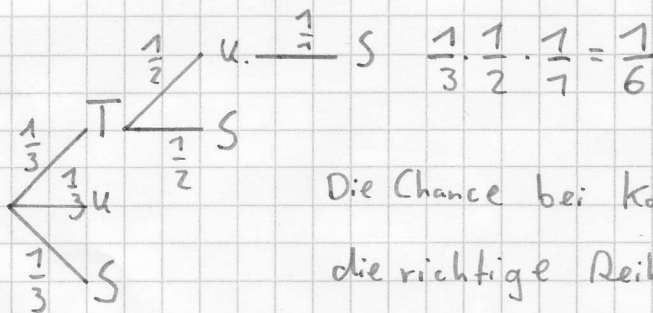 1/2 U 1/1 S 1/3 · 1/2 · 1/1 = 1/6
1/3 T 1/2 S
1/3 U Die Chance bei
1/3 S die richtige